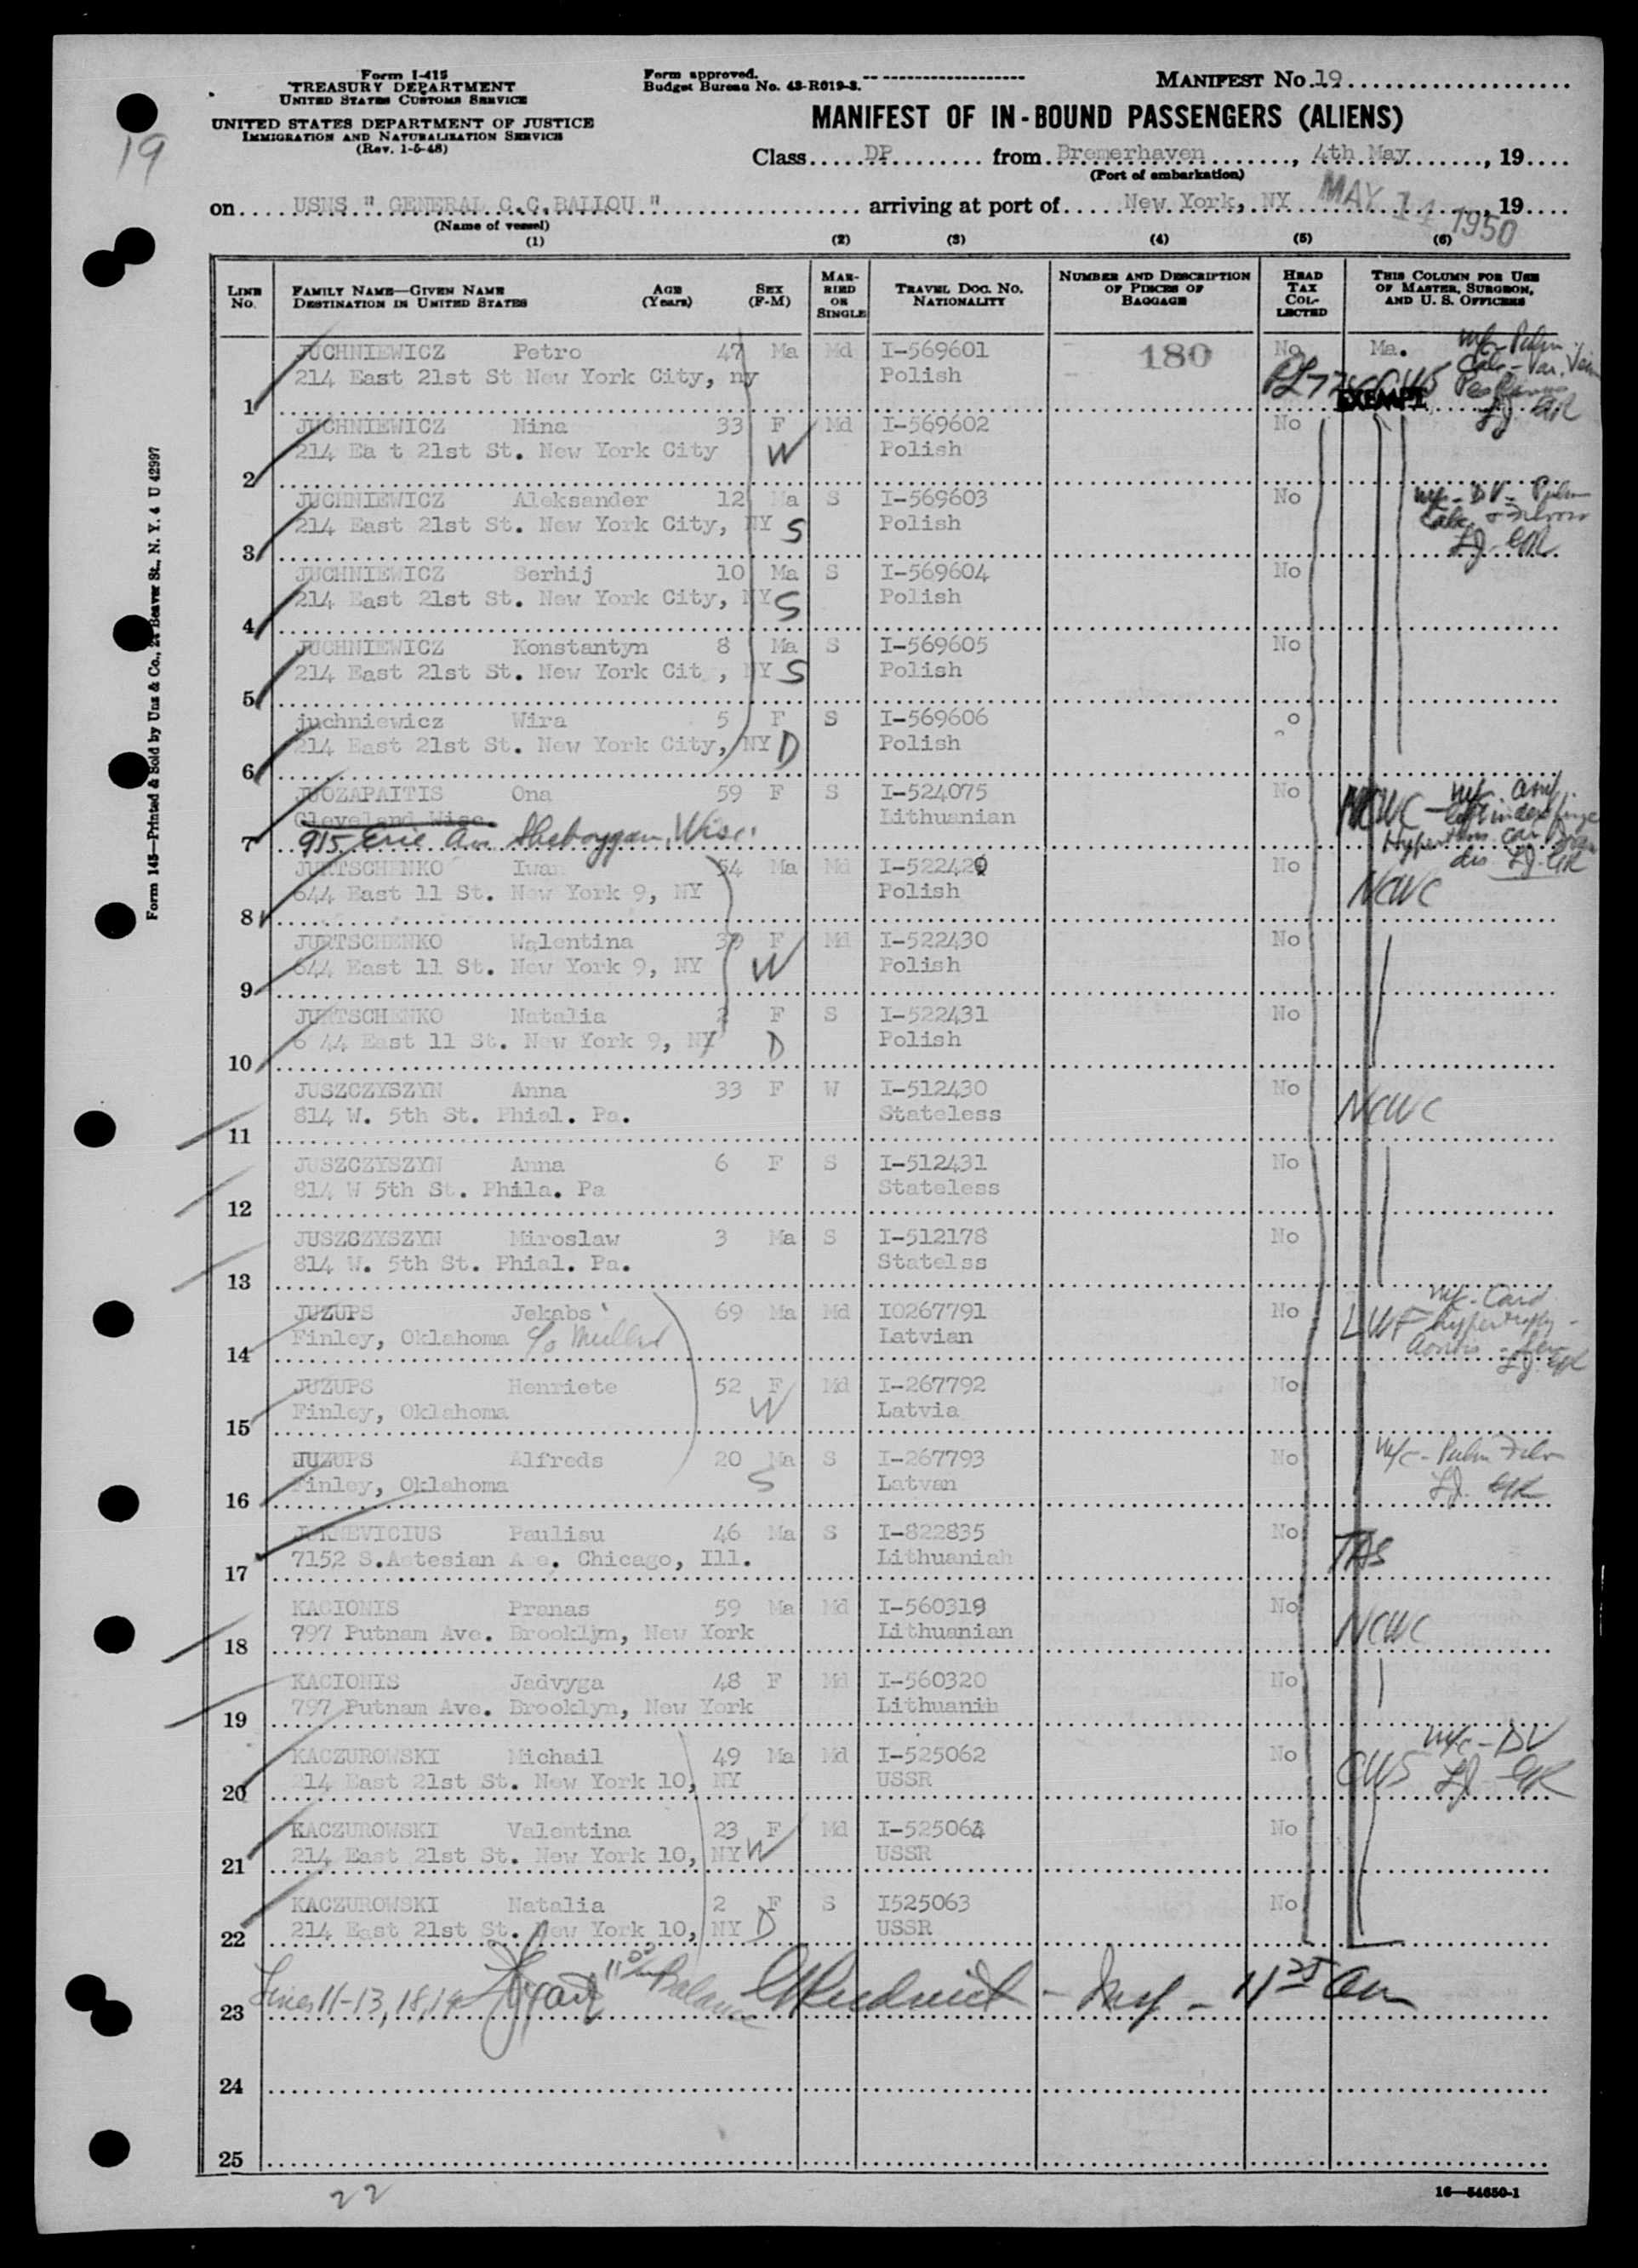 Form I-415
TREASURY DEPARTMENT
UNITED STATES CUSTOMS SERVICE
UNITED STATES DEPARTMENT OF JUSTICE
IMMIGRATION AND NATURALIZATION SERVICE
(Rev. 1-5-48)
19
Form approved.
Budget Bureau No. 43-R019-3.
MANIFEST No. 19
MANIFEST OF IN-BOUND PASSENGERS (ALIENS)
Class DP from Bremerhaven, 4th May, 19
(Port of embarkation)
on USNS " GENERAL C.C.BALLOU " arriving at port of New York, NY MAY 14 1950, 19
(Name of vessel)
(1) (2) (3) (4) (5) (6)
LINE No. FAMILY NAME—GIVEN NAME DESTINATION IN UNITED STATES AGE (Years) SEX (F-M) MARRIED OR SINGLE TRAVEL DOC. No. NATIONALITY NUMBER AND DESCRIPTION OF PIECES OF BAGGAGE HEAD TAX COLLECTED THIS COLUMN FOR USE OF MASTER, SURGEON, AND U. S. OFFICERS
JUCHNIEWICZ Petro 47 Ma Md I-569601 180 No Ma.
214 East 21st St New York City, ny Polish
1 EXEMPT
JUCHNIEWICZ Nina 33 F Md I-569602 No
214 Ea t 21st St. New York City W Polish
2
JUCHNIEWICZ Aleksander 12 Ma S I-569603 No
214 East 21st St. New York City, NY S Polish
3
JUCHNIEWICZ Serhij 10 Ma S I-569604 No
214 East 21st St. New York City, NY S Polish
4
JUCHNIEWICZ Konstantyn 8 Ma S I-569605 No
214 East 21st St. New York Cit , NY S Polish
5
juchniewicz Wira 5 F S I-569606 o
214 East 21st St. New York City, NY D Polish
6
JUOZAPAITIS Ona 59 F S I-524075 No NCWC
Cleveland Wisc. Lithuanian
7 915 Erie Av. Sheboygan, Wisc.
JURTSCHENKO Iwan 54 Ma Md I-522429 No NCWC
644 East 11 St. New York 9, NY Polish
8
JURTSCHENKO Walentina 39 F Md I-522430 No
644 East 11 St. New York 9, NY W Polish
9
JURTSCHENKO Natalia 2 F S I-522431 No
6 44 East 11 St. New York 9, NY D Polish
10
JUSZCZYSZYN Anna 33 F W I-512430 No NCWC
814 W. 5th St. Phial. Pa. Stateless
11
JUSZCZYSZYN Anna 6 F S I-512431 No
814 W 5th St. Phila. Pa Stateless
12
JUSZCZYSZYN Miroslaw 3 Ma S I-512178 No
814 W. 5th St. Phial. Pa. Statelss
13
JUZUPS Jekabs 69 Ma Md I0267791 No LWF
Finley, Oklahoma Latvian
14
JUZUPS Henriete 52 F Md I-267792 No
Finley, Oklahoma W Latvia
15
JUZUPS Alfreds 20 Ma S I-267793 No
Finley, Oklahoma S Latvan
16
JURKEVICIUS Paulisu 46 Ma S I-822835 No TAS
7152 S.Astesian Ave. Chicago, Ill. Lithuanian
17
KACIONIS Pranas 59 Ma Md I-560319 No NCWC
797 Putnam Ave. Brooklyn, New York Lithuanian
18
KACIONIS Jadvyga 48 F Md I-560320 No
797 Putnam Ave. Brooklyn, New York Lithuanin
19
KACZUROWSKI Michail 49 Ma Md I-525062 No m/c - DV
214 East 21st St. New York 10, NY USSR CWS
20
KACZUROWSKI Valentina 23 F Md I-525064 No
214 East 21st St. New York 10, NY W USSR
21
KACZUROWSKI Natalia 2 F S I525063 No
214 East 21st St. New York 10, NY D USSR
22
23 Lines 11-13, 18, 19 Balance 11 25 am
24
25
22
Form 145—Printed & Sold by Unz & Co., 24 Beaver St., N. Y. 4 U 42997
16—54650-1